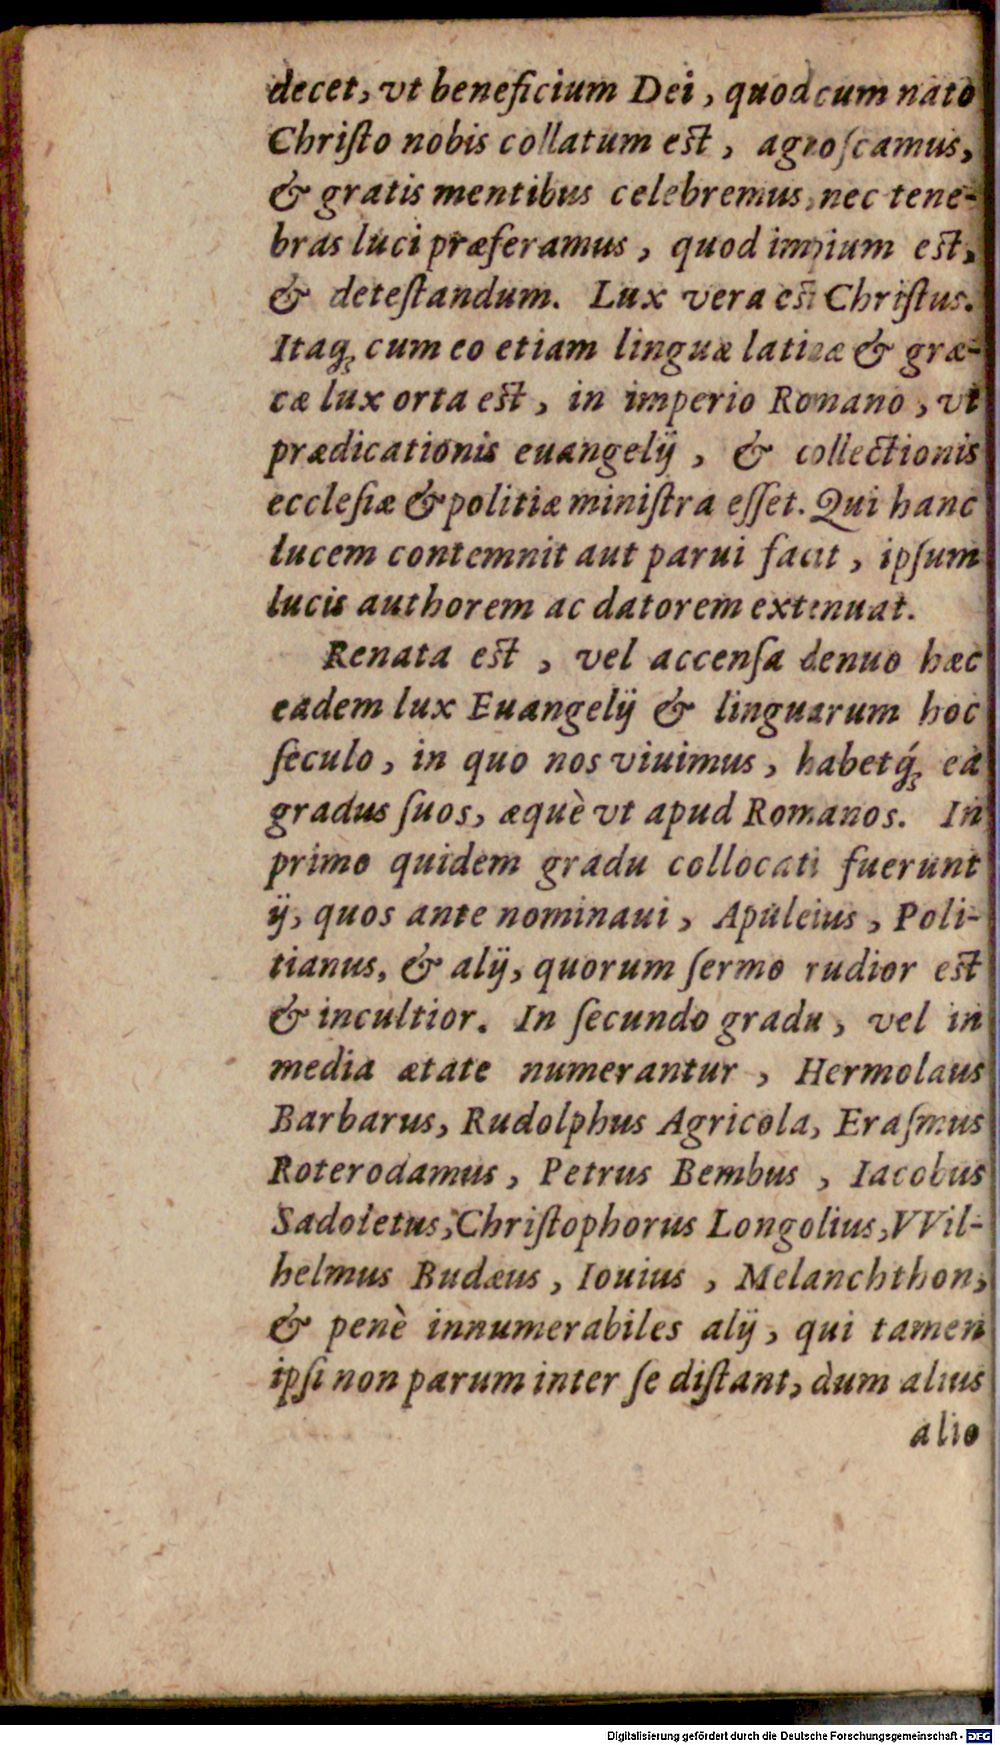 decet, vt beneficium Dei, quod cum nato
Chriſto nobis collatum est, agnoſcamus,
& gratis mentibus celebremus, nec tene-
bras luci præferamus, quod impium est,
& deteſtandum. Lux vera est Chriſtus.
Itaq́; cum eo etiam linguæ latinæ & græ-
cæ lux orta est, in imperio Romano, vt
prædicationis euangelij, & collectionis
eccleſiæ & politiæ miniſtra eſſet. Qui hanc
lucem contemnit aut parui facit, ipſum
lucis authorem ac datorem extenuat.
Renata est, vel accenſa denuo hæc
eadem lux Euangelij & linguarum hoc
ſeculo, in quo nos viuimus, habetq́; ea
gradus ſuos, æquè vt apud Romanos. In
primo quidem gradu collocati fuerunt
ij, quos ante nominaui, Apuleius, Poli-
tianus, & alij, quorum ſermo rudior est
& incultior. In ſecundo gradu, vel in
media ætate numerantur, Hermolaus
Barbarus, Rudolphus Agricola, Eraſmus
Roterodamus, Petrus Bembus, Iacobus
Sadoletus, Chriſtophorus Longolius, VVil-
helmus Budæus, Iouius, Melanchthon,
& penè innumerabiles alij, qui tamen
ipſi non parum inter ſe diſtant, dum alius
alio
Digitalisierung gefördert durch die Deutsche Forschungsgemeinschaft - DFG